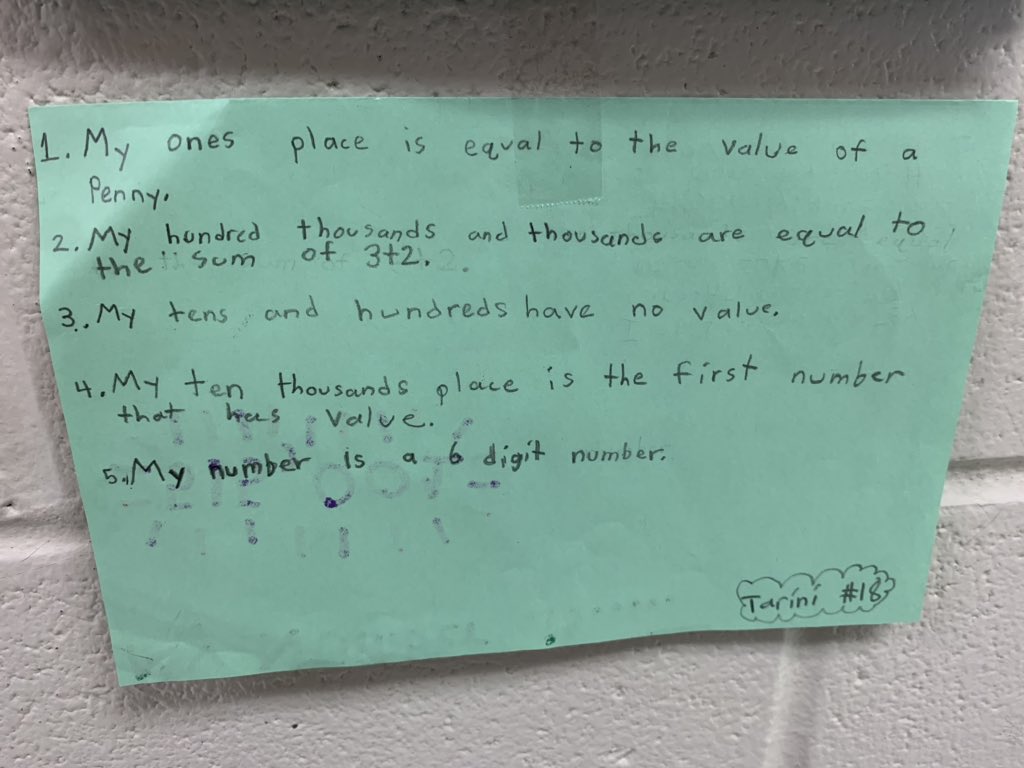 1. My ones place is equal to the value of a
Penny.
2. My hundred thousands and thousands are equal to
the sum of 3+2.
3. My tens and hundreds have no value.
4. My ten thousands place is the first number
that has value.
5. My number is a 6 digit number.
Tarini #18